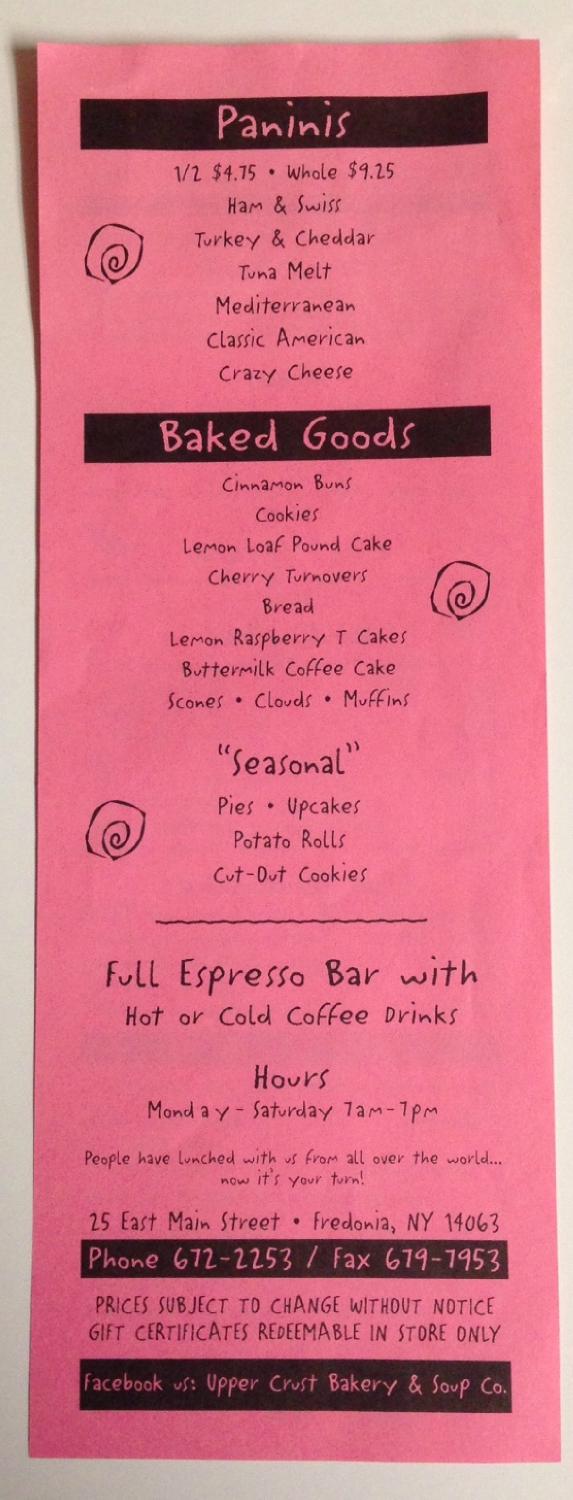 Paninis
1/2 $4.75 • Whole $9.25
Ham & Swiss
Turkey & Cheddar
Tuna Melt
Mediterranean
Classic American
Crazy Cheese
Baked Goods
Cinnamon Buns
Cookies
Lemon Loaf Pound Cake
Cherry Turnovers
Bread
Lemon Raspberry T Cakes
Buttermilk Coffee Cake
Scones • Clouds • Muffins
"Seasonal"
Pies • Upcakes
Potato Rolls
Cut-Out Cookies
Full Espresso Bar with
Hot or Cold Coffee Drinks
Hours
Monday - Saturday 7am-7pm
People have lunched with us from all over the world...
now it's your turn!
25 East Main Street • Fredonia, NY 14063
Phone 672-2253 / Fax 679-7953
PRICES SUBJECT TO CHANGE WITHOUT NOTICE
GIFT CERTIFICATES REDEEMABLE IN STORE ONLY
Facebook us: Upper Crust Bakery & Soup Co.